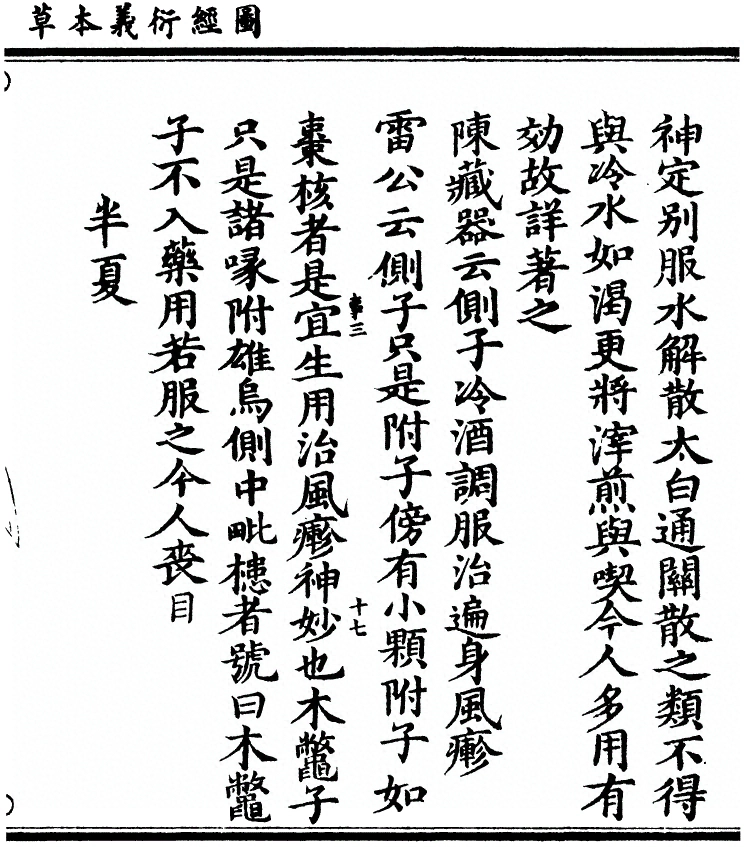 圖經衍義本草
神定别服水解散太白通關散之類不得
與冷水如渴更將滓煎與喫今人多用有
効故詳著之
陳藏器云側子冷酒調服治遍身風㾦
雷公云側子只是附子傍有小顆附子如
棗核者是宜生用治風㾦神妙也木鼈子
事三
十七
只是諸喙附雄烏側中毗槵者號曰木鼈
子不入藥用若服之令人喪目
半夏